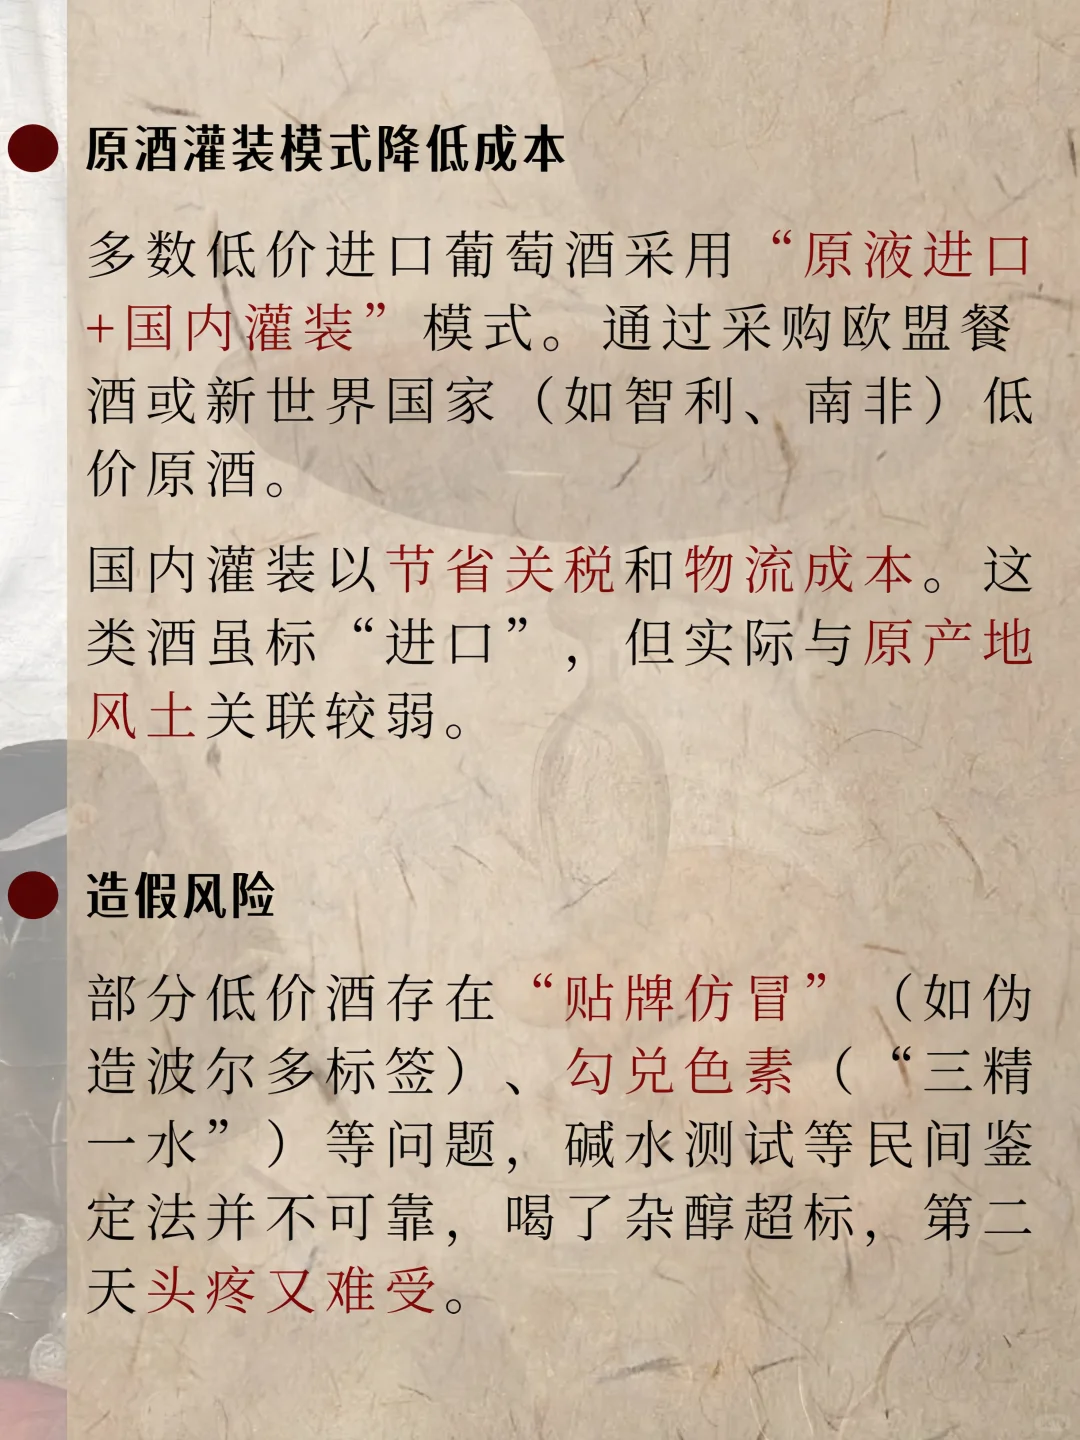 原酒灌装模式降低成本
多数低价进口葡萄酒采用“原液进口
+国内灌装”模式。通过采购欧盟餐
酒或新世界国家（如智利、南非）低
价原酒。
国内灌装以节省关税和物流成本。这
类酒虽标“进口”，但实际与原产地
风土关联较弱。
造假风险
部分低价酒存在“贴牌仿冒”（如伪
造波尔多标签）、勾兑色素（“三精
一水”）等问题，碱水测试等民间鉴
定法并不可靠，喝了杂醇超标，第二
天头疼又难受。